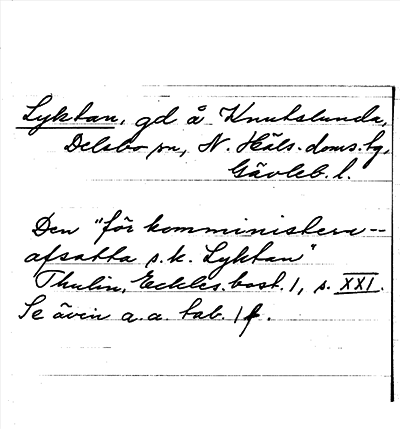 Lyktan, gd å Knutslunda,
Delsbo sn, N. Häls. doms.tg,
Gävleb. l.
Den "för komministern --
afsatta s.k. Lyktan"
Thulin, Eckles. bost. 1, s. XXI.
Se även a.a. tab. 14.